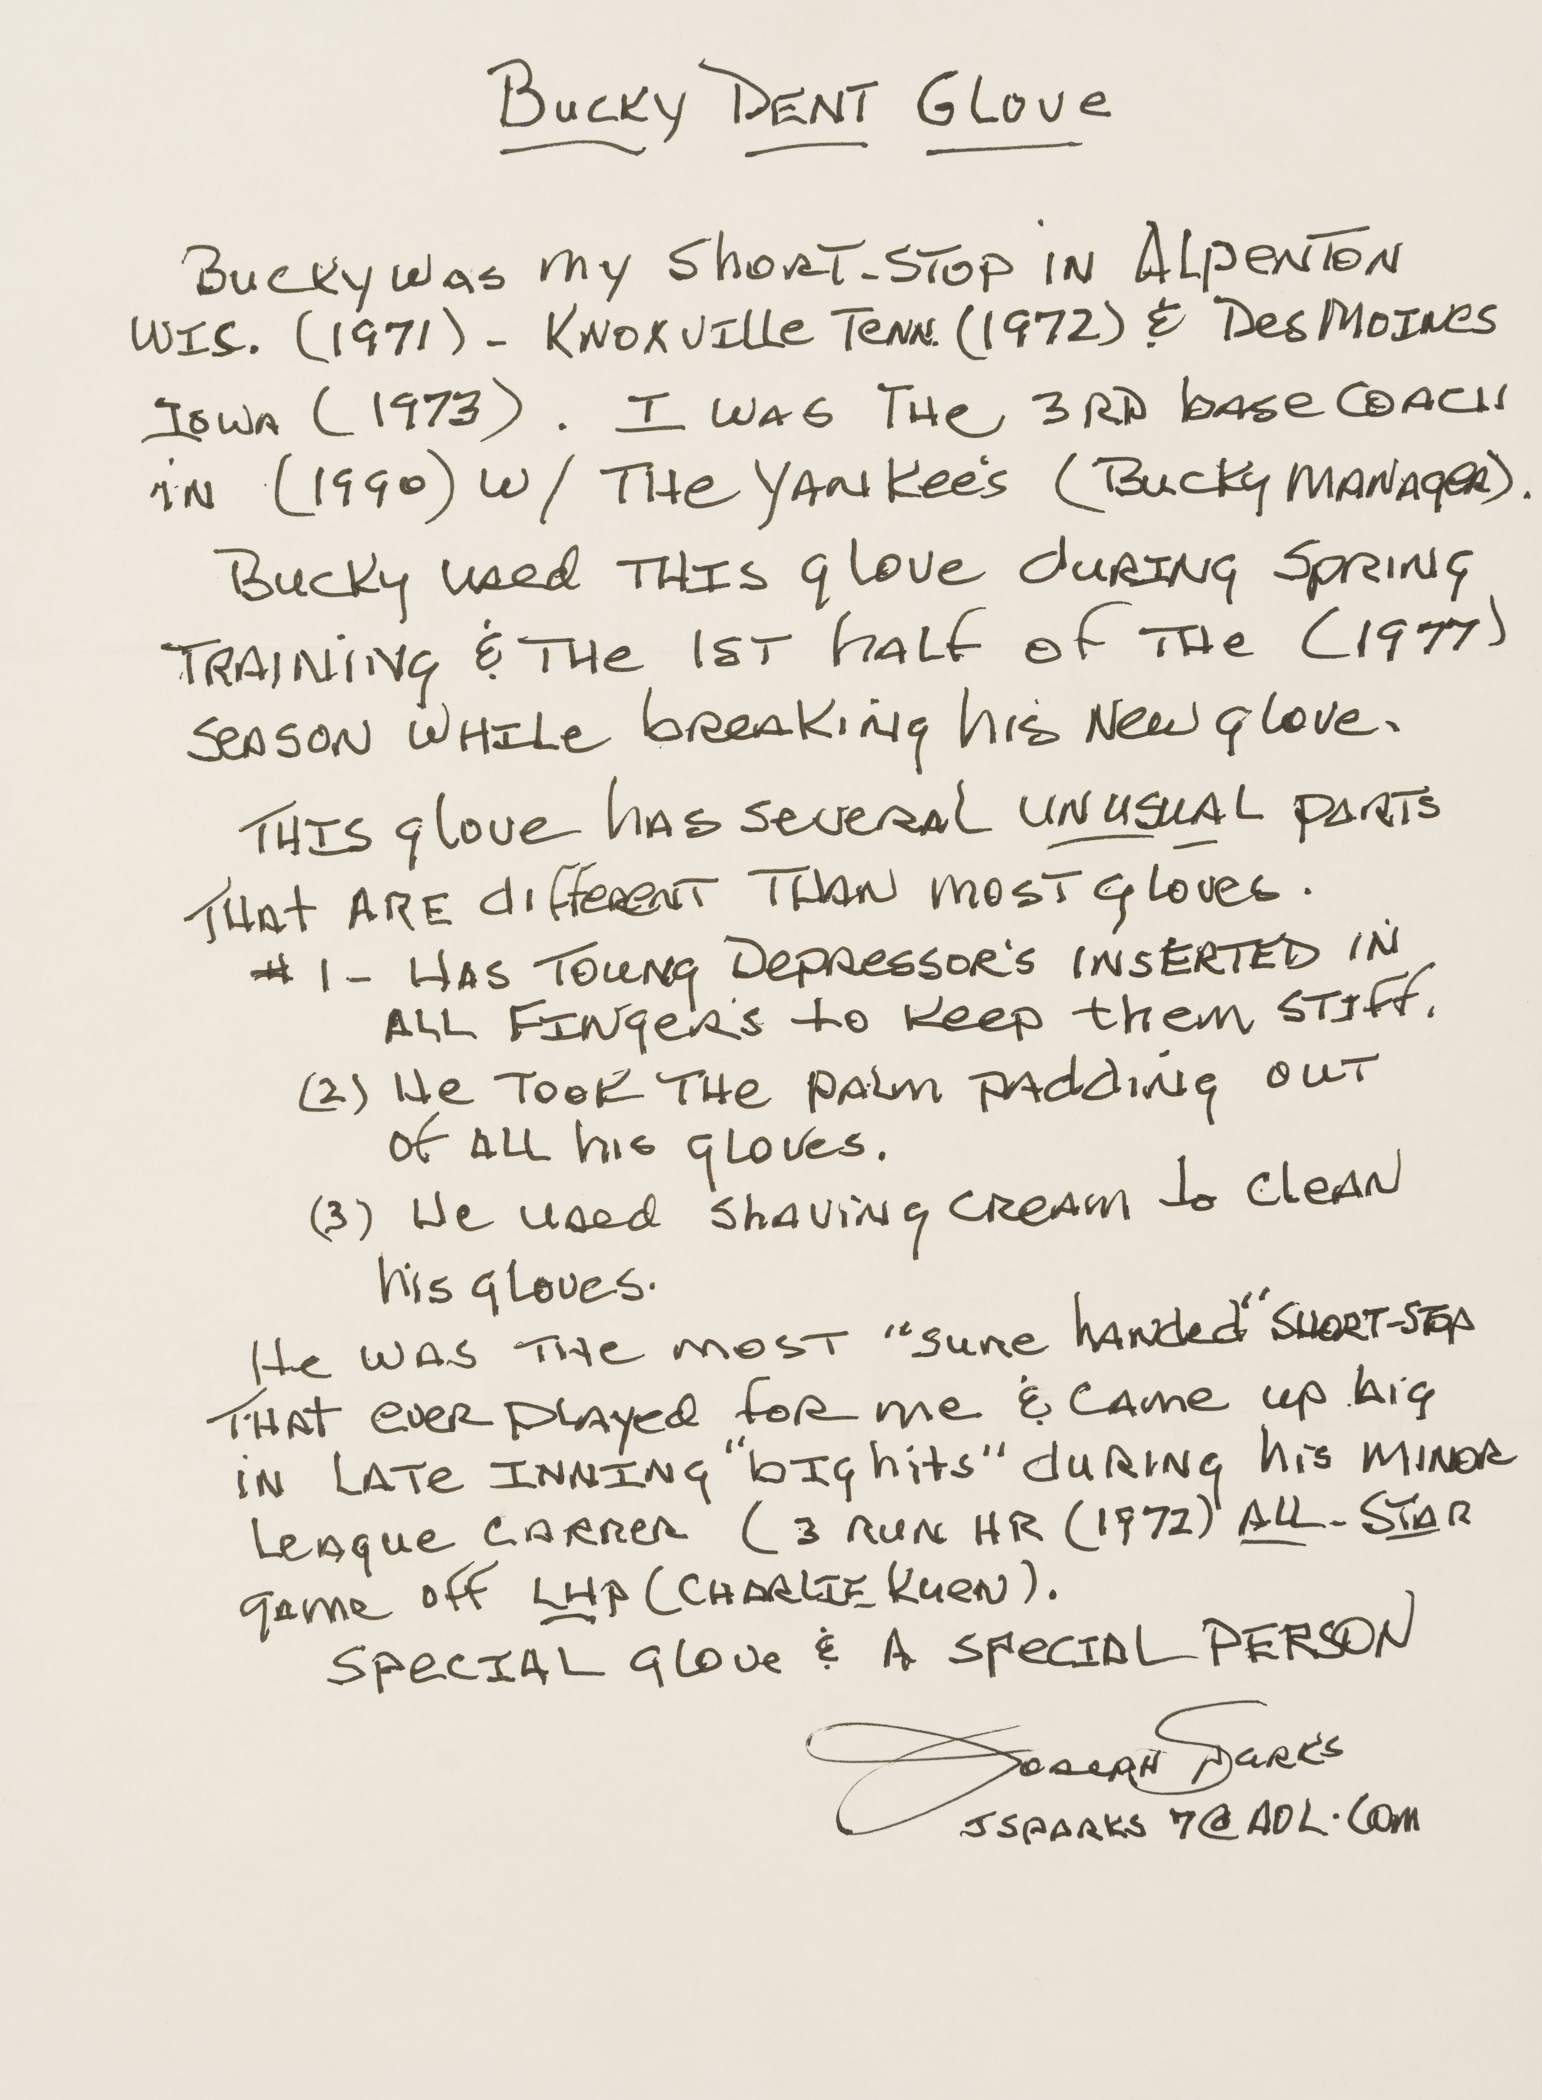 Bucky Dent Glove
Bucky was my short-stop in Alpenton
Wis. (1971) - Knoxville Tenn. (1972) & Des Moines
Iowa (1973). I was the 3rd base coach
in (1990) w/ the Yankee's (Bucky Manager).
Bucky used this glove during spring
training & the 1st half of the (1977)
season while breaking his new glove.
This glove has several unusual parts
that are different than most gloves.
#1 - Has toung depressor's inserted in
all finger's to keep them stiff.
(2) He took the palm padding out
of all his gloves.
(3) He used shaving cream to clean
his gloves.
He was the most "sure handed" short-stop
that ever played for me & came up big
in late inning "big hits" during his minor
league carrer (3 run HR (1972) All-Star
game off LHP (Charlie Kuen).
Special glove & a special person
Joseph Sparks
JSPARKS7@AOL.COM